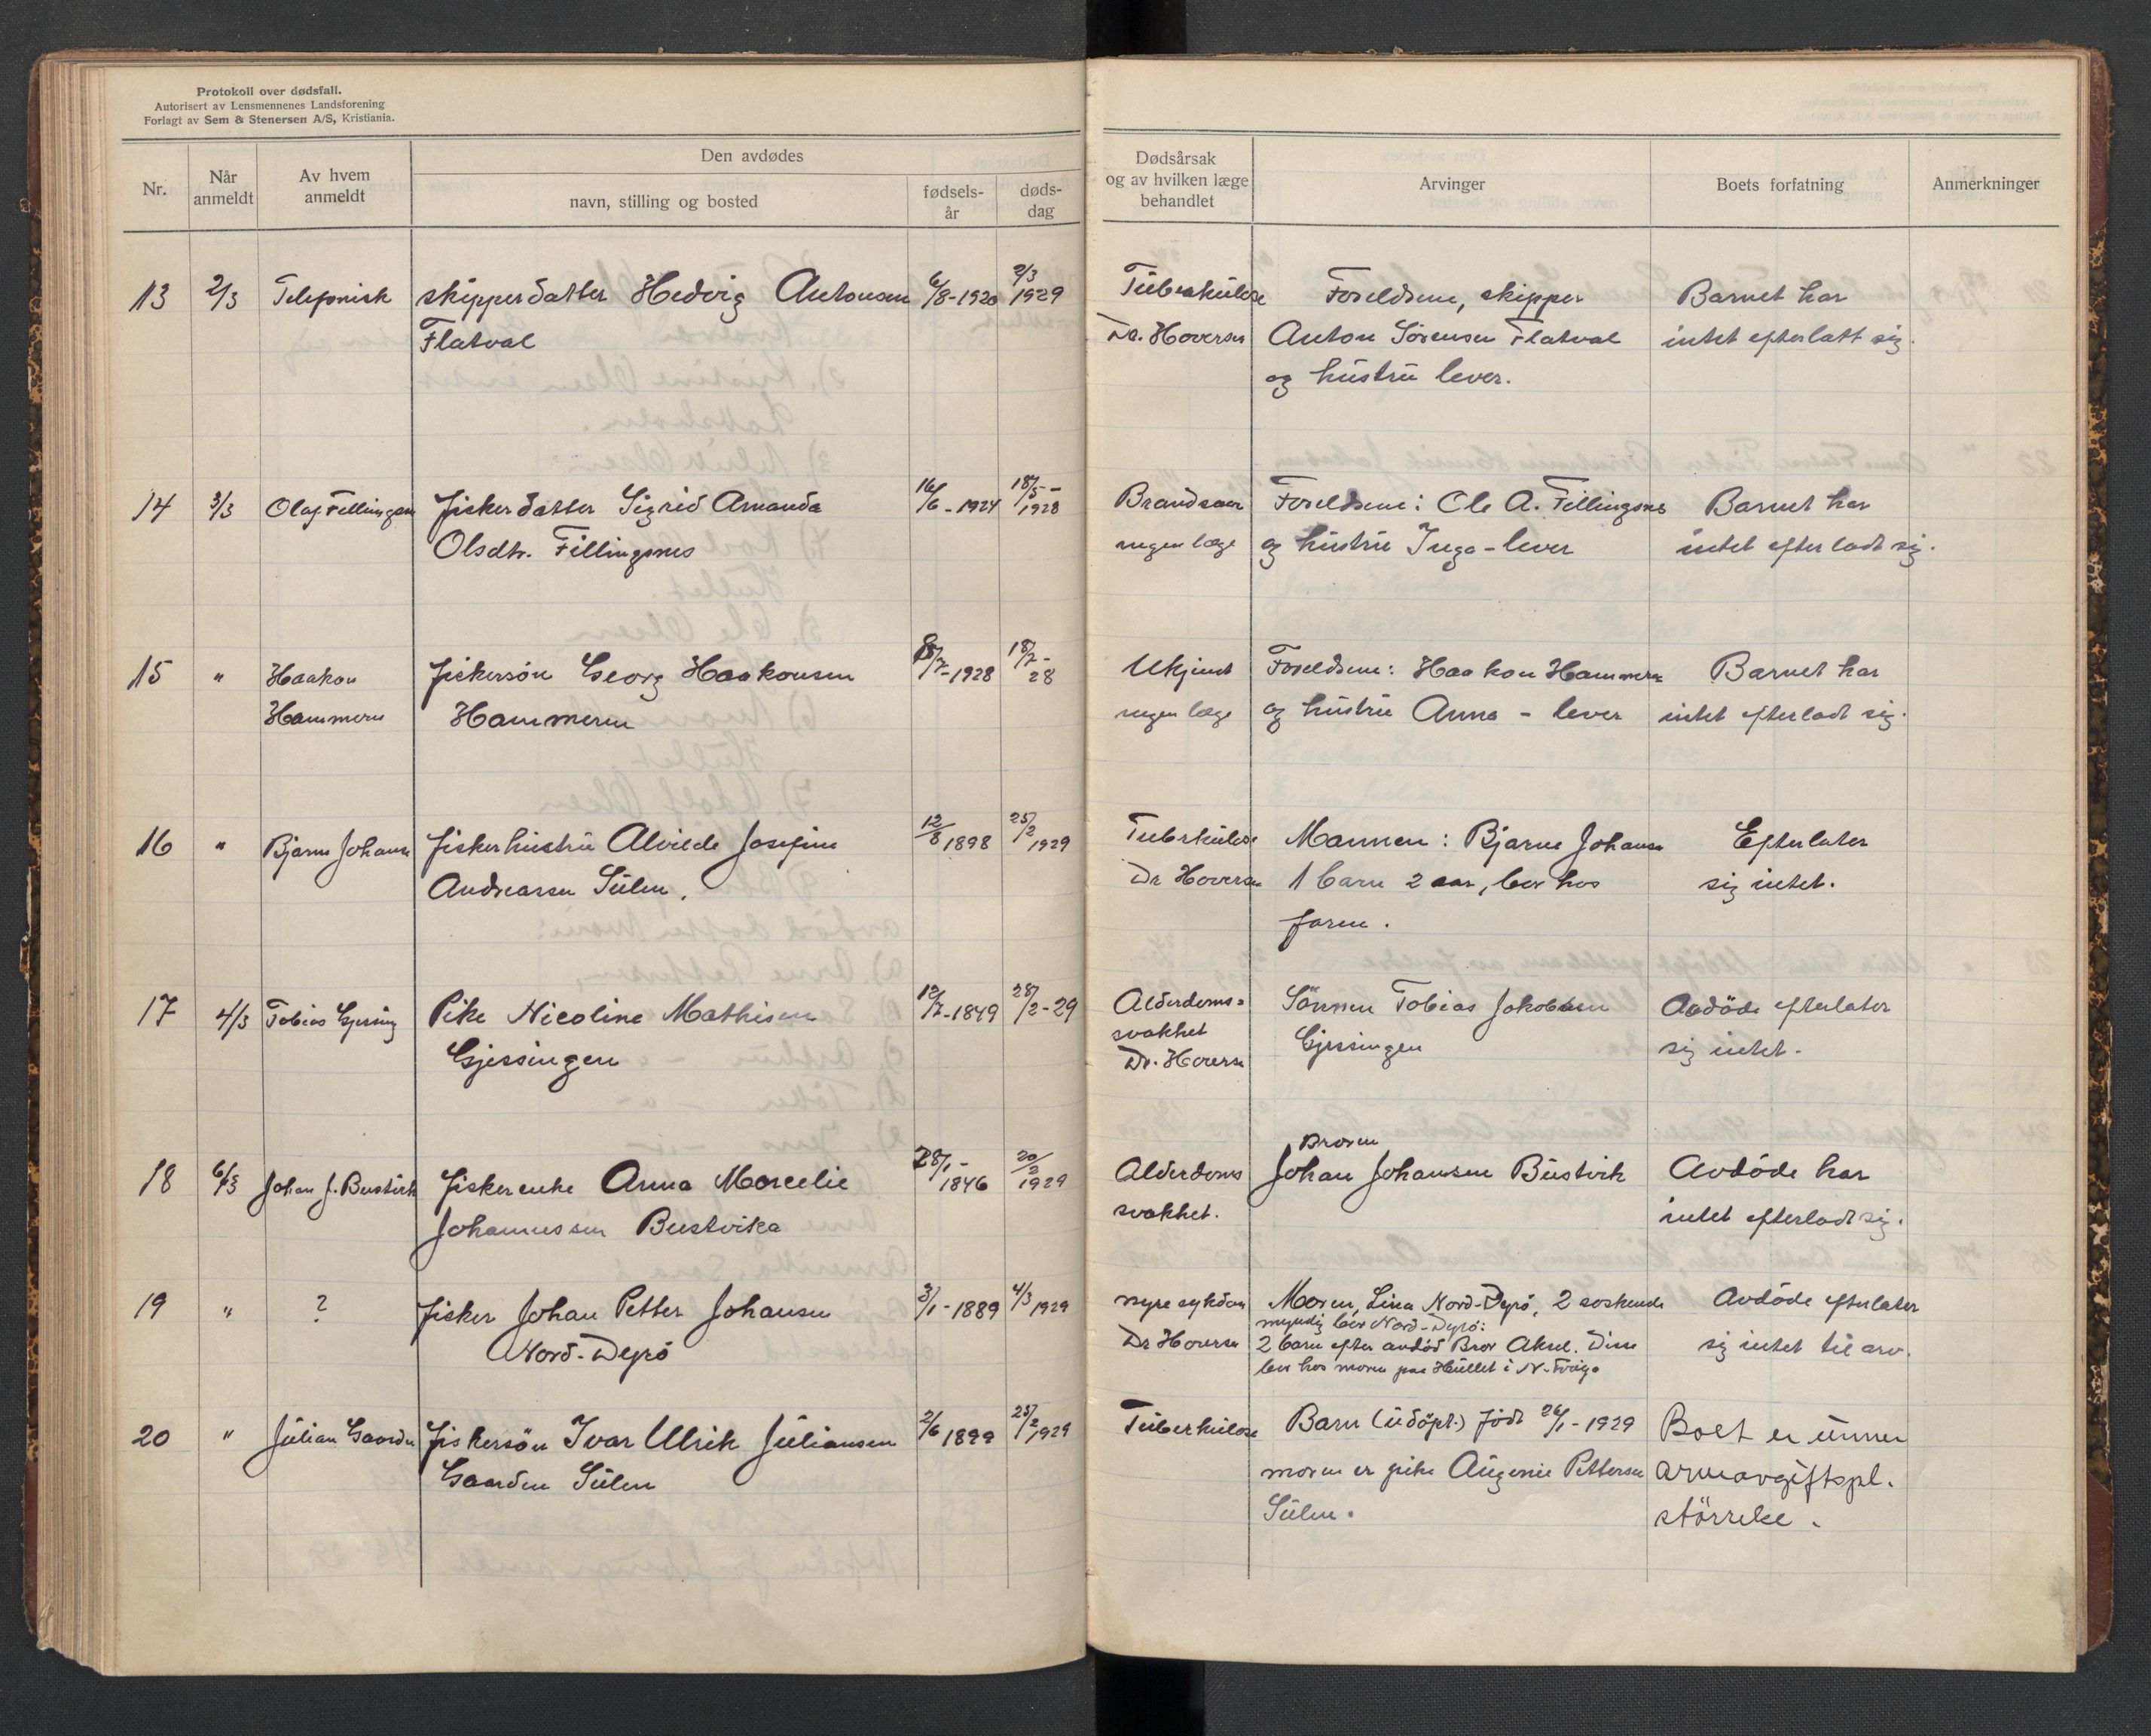 Protokoll over dødsfall.
Autorisert av Lensmennenes Landsforening
Forlagt av Sem & Stenersen A/S, Kristiania.
Nr.
Når anmeldt
Av hvem anmeldt
Den avdødes
navn, stilling og bosted
fødsels-år
døds-dag
Dødsårsak og av hvilken læge behandlet
Arvinger
Boets forfatning
Anmerkninger
13 2/3 Telefonisk skipperdatter Hedvig Antonsen 6/8-1920 2/3 1929 Tuberkulose Foreldrene, skipper Barnet har
Flatval Dr. Hoversen Anton Sørensen Flatval intet efterlatt sig.
og hustru lever.
14 3/3 Olaf Fillingsnes fiskerdatter Sigrid Amanda 16/6-1924 18/5-1928 Brandsaar Foreldrene: Ole A. Fillingsnes Barnet har
Olsdtr. Fillingsnes ingen læge og hustru Inga - lever intet efterladt sig.
15 " Haakon fiskersön Georg Haakonsen 8/7-1928 18/7-28 Ukjent Foreldrene: Haakon Hammeren Barnet har
Hammeren Hammeren ingen læge og hustru Anna - lever intet efterladt sig.
16 " Bjarne Johansen fiskerhustru Alvilde Josefine 12/8 1898 25/2 1929 Tuberkulose Mannen: Bjarne Johansen Efterlater
Andreassen Sulen. Dr Hoversen 1 barn 2 aar, bor hos sig intet.
faren.
17 4/3 Tobias Gjessing Pike Nicoline Mathisen 12/7-1849 28/2-29 Alderdoms- Sönnen Tobias Jakobsen Avdöde efterlater
Gjessingen svakhet Gjessingen sig intet.
Dr. Hoversen
Broren
18 6/3 Johan J. Bustvik fiskerenke Anna Marcelie 28/1-1846 20/2 1929 Alderdoms Johan Johansen Bustvik Avdöde har
Johannessen Bustvika svakhet. intet efterladt sig.
19 " ? fisker Johan Petter Johansen 3/1-1889 4/3 1929 nyre sykdom Moren, Lina Nord-Dyrö, 2 söskende Avdöde efterlater
myndig bor Nord-Dyrö:
Nord-Dyrö Dr Hoversen 2 barn efter avdöd Bror Aksel. Disse sig intet til arv.
bor hos moren paa Hullet i N-Fröya
20 " Julian Gaarden fiskersön Ivar Ulrik Juliansen 2/6 1899 25/2 1929 Tuberkulose Barn (udöpt.) född 26/1-1929 Boet er under
Gaarden Sulen moren er pike Augenie Pettersen arveavgiftspl.
Sulen. störrelse.